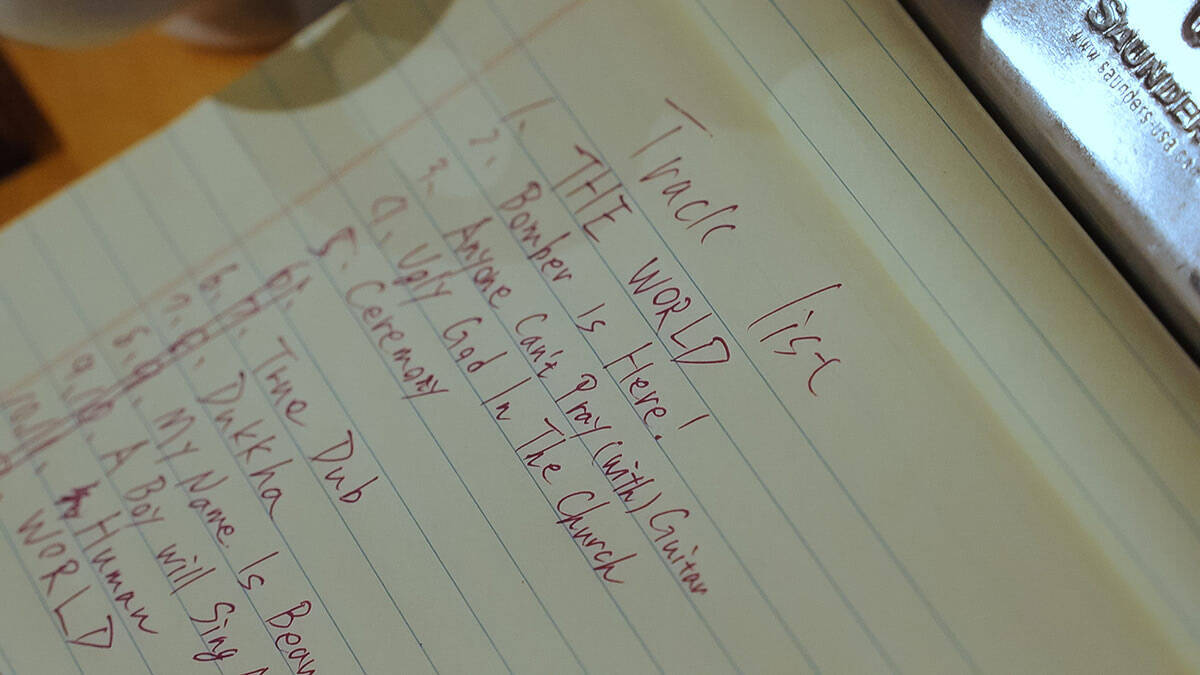 Track list
1. THE WORLD
2. Bomber Is Here!
3. Anyone Can't Pray (with) Guitar
4. Ugly God In The Church
5. Ceremony
6. True Dub
Dukkha
8. My Name Is
A Boy will Sing
Human
WORLD
SAUNDER
www.saunders-usa.co